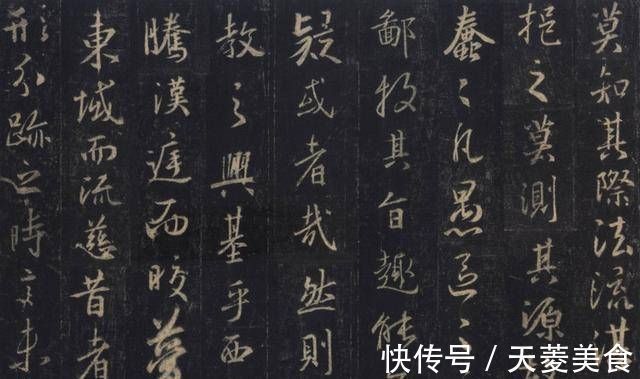 莫知其際法流湛
挹之莫測其源
蠢々凡愚區々
鄙投其旨趣能
疑或者哉然則
教之興基乎西
騰漢庭而皎夢
東域而流慈昔者
形分跡之時言未
快传号 / 天菱美食